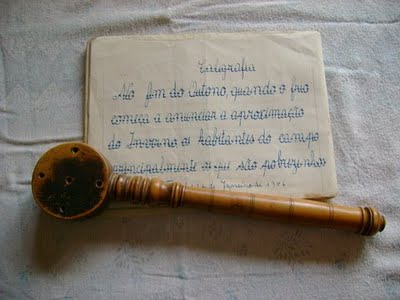 Caligrafia
No fim do Outono, quando o frio
começa a anunciar a aproximação
do Inverno, os habitantes do campo
principalmente os que são pobrezinhos
de Fevereiro de